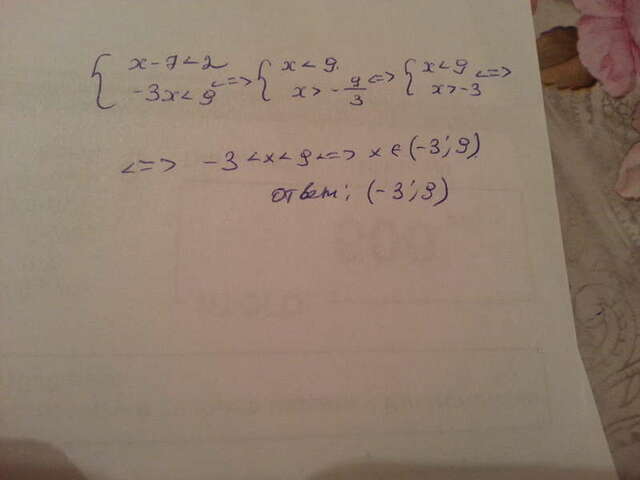 { x - 7 < 2 <=> { x < 9 <=> { x < 9 <=>
-3x < 9 x > - 9/3 x > -3
<=> -3 < x < 9 <=> x ∈ (-3; 9)
ответ: (-3; 9)